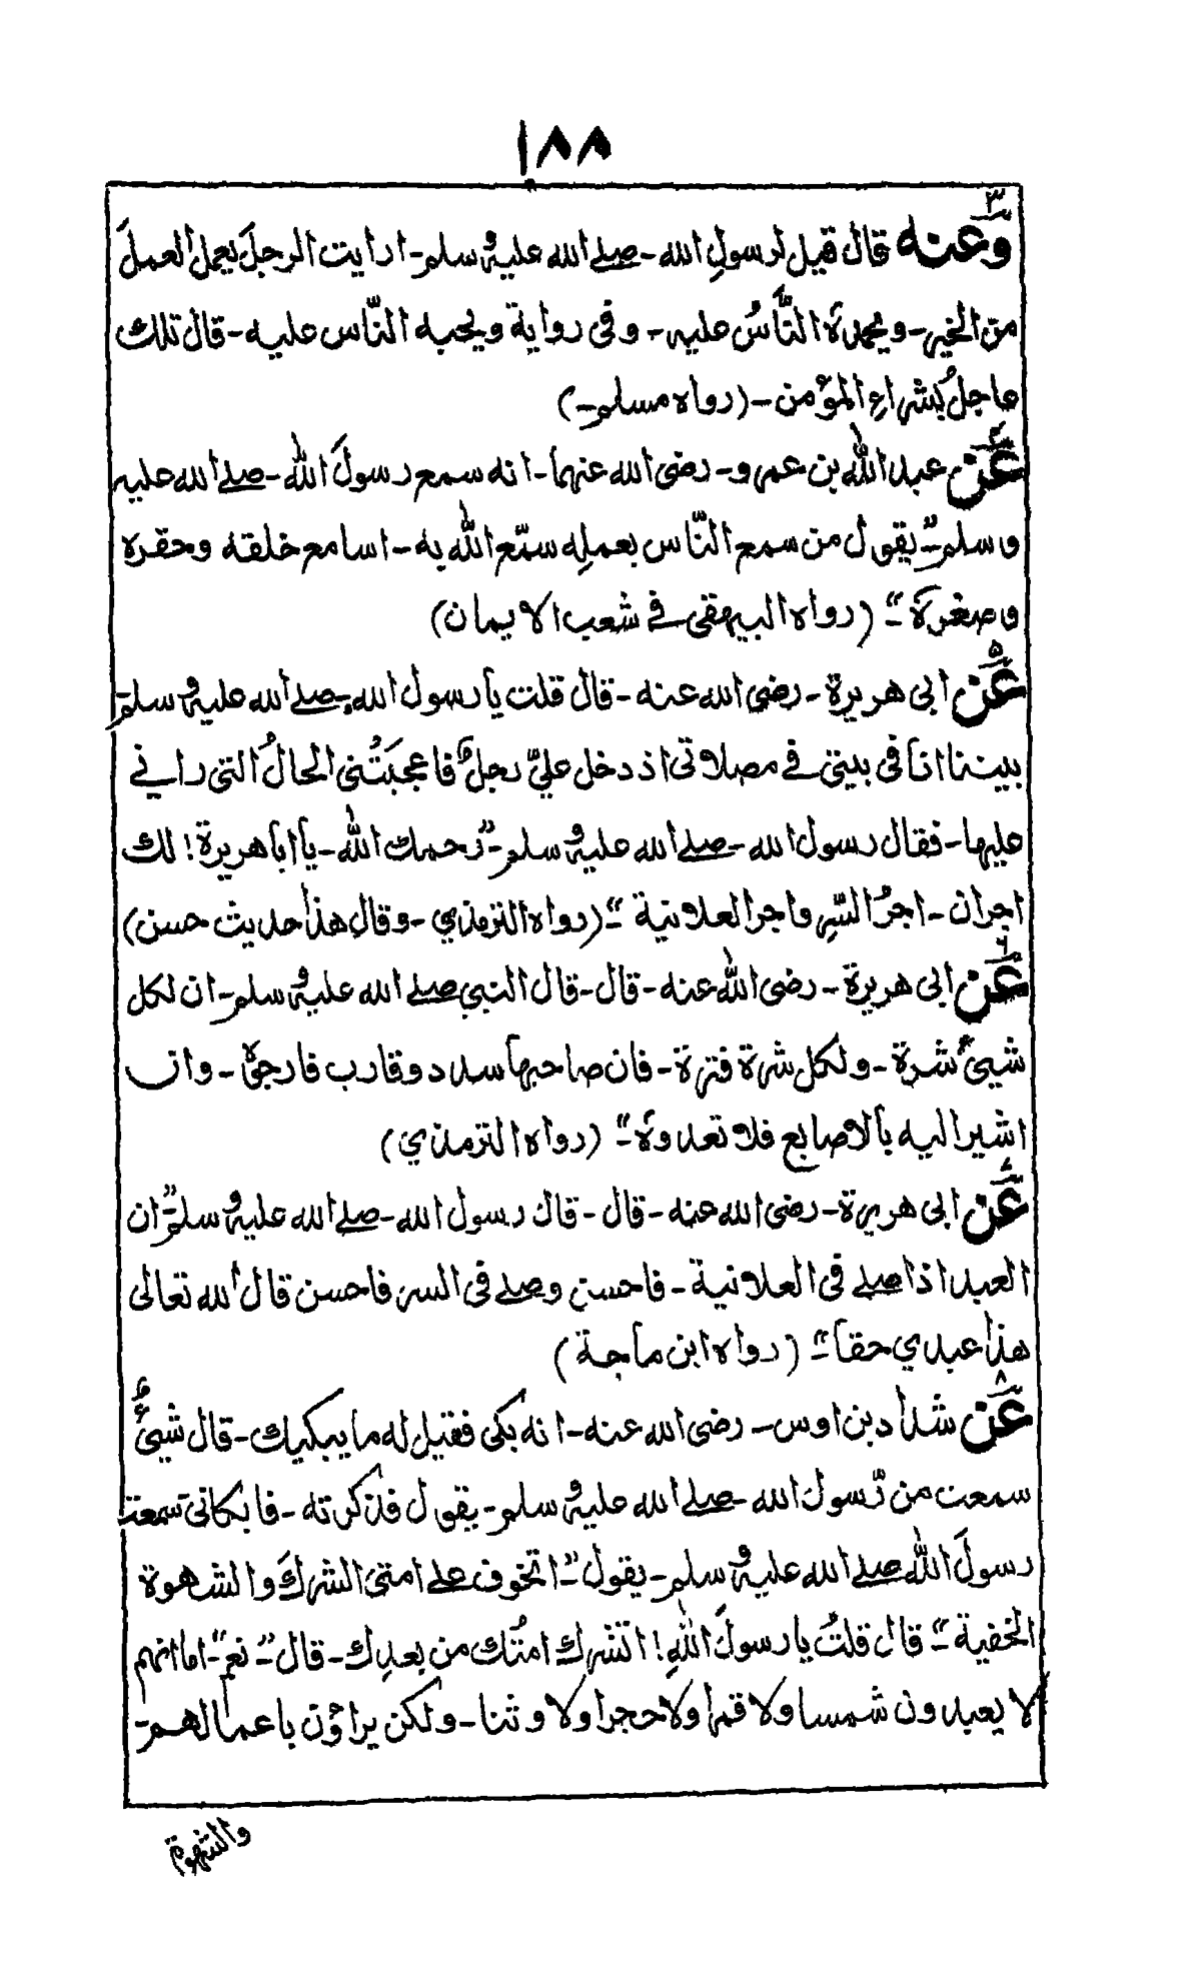 ١٨٨
٣
وعنه قال قيل لرسولِ الله - صلے الله عليہ و سلم - ارايت الرجلَ يعمل العملَ
من الخير - ويحمدہ النَّاسُ عليه - وفی رواية ويحبه النّاس عليه - قال تلك
عاجلُ بُشراءِ المؤمن - (رواه مسلم -)
٤
عَن عبد اللّٰه بن عمرو - رضی الله عنهما - انه سمع رسولَ اللّٰه - صلے الله عليه
وسلم - " يقول من سمع النّاس بعملِه سمّع اللّٰه به - اسامع خلقه وحقره
وصغرہ - " (رواه البيهقی فے شعب الايمان)
٥
عَن ابی هريرة - رضی الله عنه - قال قلت يا رسول الله - صلے الله عليہ و سلم -
بيننا انا فی بيتی فے مصلاتی اذ دخل علیَّ رجلٌ فاعجبَتُنی الحالُ التی رانے
عليها - فقال رسول الله - صلے الله عليہ و سلم - " رحمك اللّٰه - يا اباهريرة! لك
اجران - اجرُ السِّرِ واجر العلانية - " (رواه الترمذي - وقال هذا حديث حسن)
٦
عَن ابی هريرة - رضی اللّٰه عنه - قال - قال النبی صلے الله عليہ و سلم - ان لكل
شیئٍ شرة - ولكل شرة فترة - فان صاحبها سدد وقارب فارجوہ - وان
اشير اليه بالاصابع فلا تعدوہ - " (رواه الترمذي)
٧
عَن ابی هريرة - رضی الله عنه - قال - قال رسول الله - صلے الله عليہ و سلم - " ان
العبد اذا صلے فی العلانية - فاحسن وصلے فی السر فاحسن قال الله تعالی
هذا عبدي حقا - " (رواه ابن ماجة)
٨
عَن شداد بن اوس - رضی الله عنه - انه بكی فقيل له ما يبكيك - قال شیئٌ
سمعت من رّسول الله - صلے الله عليہ و سلم - يقول فذكرته - فابكانی سمعت
رسولَ اللّٰه صلے الله عليہ و سلم - يقول - " اتخوف علے امتی الشركَ والشهوة
الخفية - " قال قلتُ يا رسولَ اللّٰهِ! اتشرك امتُك من بعدِك - قال - " نعم - " اما انهم
لا يعبدون شمسا ولا قمرا ولا حجرا ولا وثنا - ولكن يراؤن باعمالهم -
والشهوة